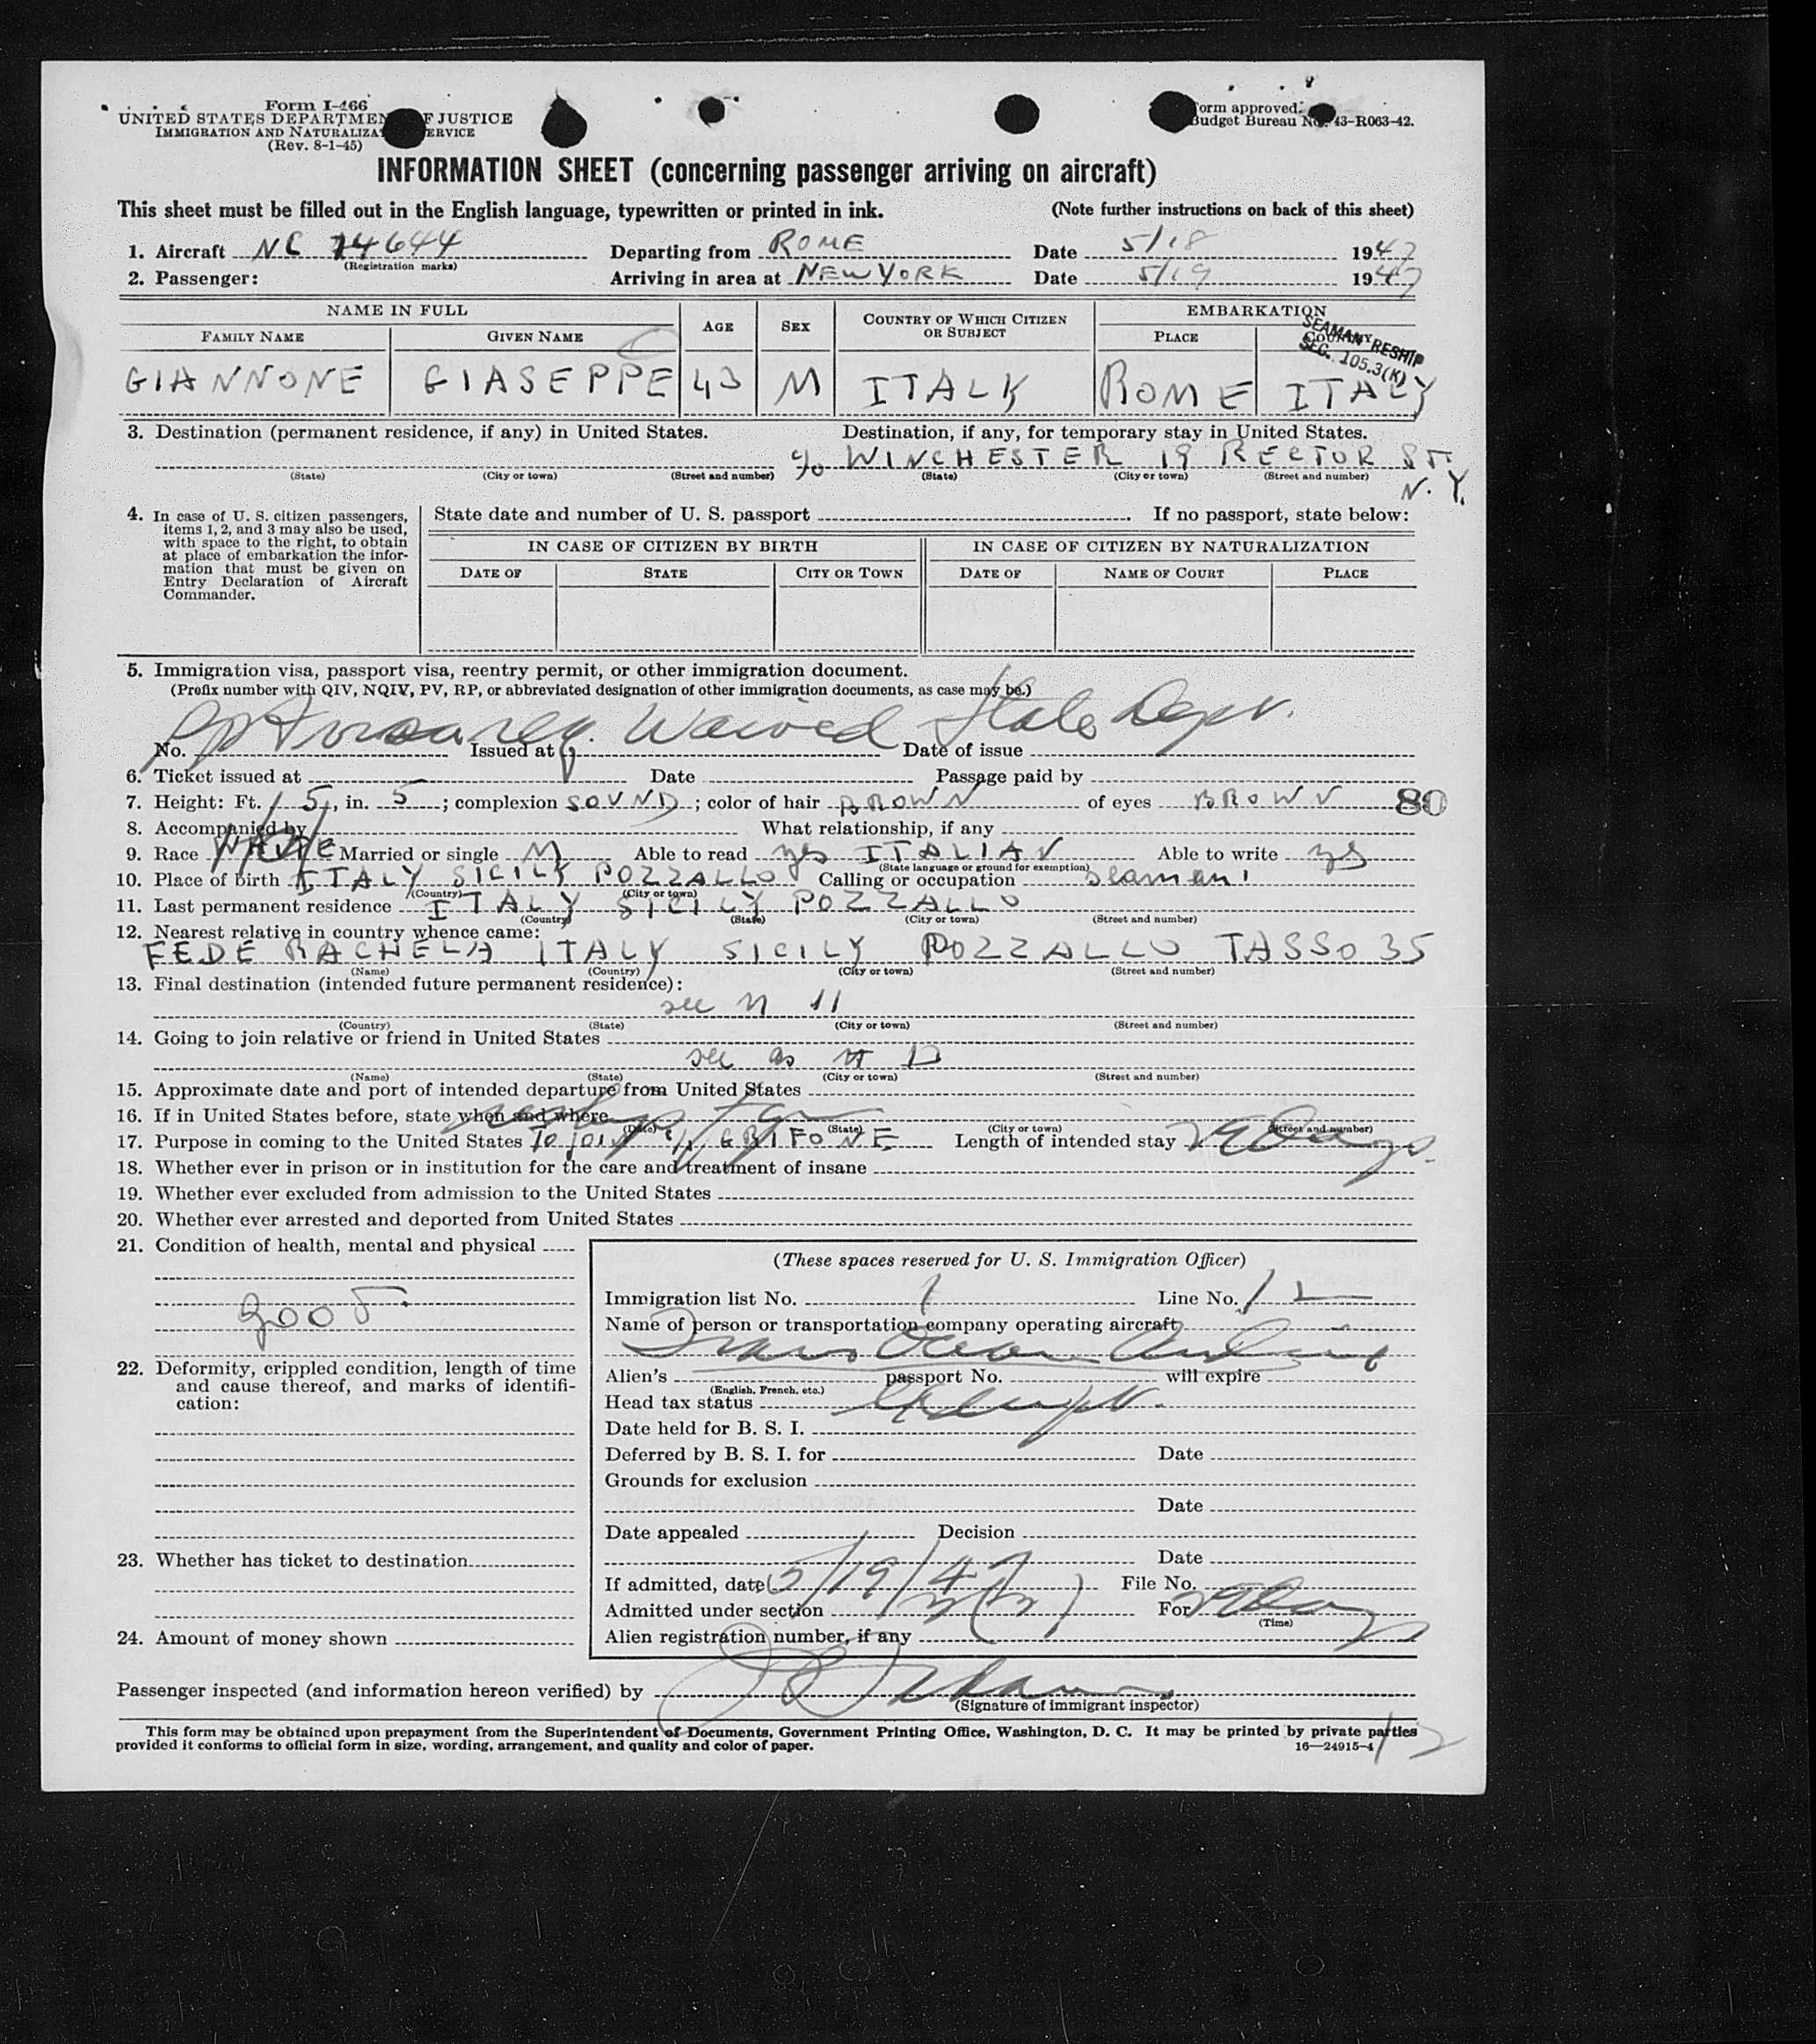 Form I-466
UNITED STATES DEPARTMENT OF JUSTICE
IMMIGRATION AND NATURALIZATION SERVICE
(Rev. 8-1-45)
Form approved.
Budget Bureau No. 43-R063-42.
INFORMATION SHEET (concerning passenger arriving on aircraft)
This sheet must be filled out in the English language, typewritten or printed in ink. (Note further instructions on back of this sheet)
1. Aircraft NC 74644 Departing from ROME Date 5/18 1947
(Registration marks)
2. Passenger: Arriving in area at NEW YORK Date 5/19 1947
NAME IN FULL AGE SEX COUNTRY OF WHICH CITIZEN OR SUBJECT EMBARKATION
FAMILY NAME GIVEN NAME PLACE COUNTRY
SEAMAN RESHIP
SEC. 105.3(K)
GIANNONE GIASEPPE 43 M ITALY ROME ITALY
3. Destination (permanent residence, if any) in United States. Destination, if any, for temporary stay in United States.
c/o WINCHESTER 19 RECTOR ST.
(State) (City or town) (Street and number) (State) (City or town) (Street and number)
N.Y.
4. In case of U. S. citizen passengers, items 1, 2, and 3 may also be used, with space to the right, to obtain at place of embarkation the information that must be given on Entry Declaration of Aircraft Commander.
State date and number of U. S. passport . If no passport, state below:
IN CASE OF CITIZEN BY BIRTH IN CASE OF CITIZEN BY NATURALIZATION
DATE OF STATE CITY OR TOWN DATE OF NAME OF COURT PLACE
5. Immigration visa, passport visa, reentry permit, or other immigration document.
(Prefix number with QIV, NQIV, PV, RP, or abbreviated designation of other immigration documents, as case may be.)
Waived State Dept.
No. Issued at Date of issue
6. Ticket issued at Date Passage paid by
7. Height: Ft. 5, in. 5; complexion SOUND; color of hair BROWN of eyes BROWN 80
8. Accompanied by What relationship, if any
9. Race WHITE Married or single M Able to read yes ITALIAN Able to write yes
(State language or ground for exemption)
10. Place of birth ITALY SICILY POZZALLO Calling or occupation seaman
(Country) (City or town)
11. Last permanent residence ITALY SICILY POZZALLO
(Country) (State) (City or town) (Street and number)
12. Nearest relative in country whence came:
FEDE RACHELA ITALY SICILY POZZALLO TASSO 35
(Name) (Country) (City or town) (Street and number)
13. Final destination (intended future permanent residence):
see N 11
(Country) (State) (City or town) (Street and number)
14. Going to join relative or friend in United States
see as
(Name) (State) (City or town) (Street and number)
15. Approximate date and port of intended departure from United States
16. If in United States before, state when and where
(Date) (State) (City or town) (Street and number)
17. Purpose in coming to the United States To join GRIFONE Length of intended stay 29 Days.
18. Whether ever in prison or in institution for the care and treatment of insane
19. Whether ever excluded from admission to the United States
20. Whether ever arrested and deported from United States
21. Condition of health, mental and physical
good
22. Deformity, crippled condition, length of time and cause thereof, and marks of identification:
23. Whether has ticket to destination
24. Amount of money shown
(These spaces reserved for U. S. Immigration Officer)
Immigration list No. 1 Line No. 12
Name of person or transportation company operating aircraft
Trans Ocean Airlines
Alien's passport No. will expire
(English, French, etc.)
Head tax status Exempt.
Date held for B. S. I.
Deferred by B. S. I. for Date
Grounds for exclusion
Date
Date appealed Decision
Date
If admitted, date 5/19/47 File No.
Admitted under section 3(5) For 29 Days
(Time)
Alien registration number, if any
Passenger inspected (and information hereon verified) by
(Signature of immigrant inspector)
This form may be obtained upon prepayment from the Superintendent of Documents, Government Printing Office, Washington, D. C. It may be printed by private parties
provided it conforms to official form in size, wording, arrangement, and quality and color of paper. 16—24915-4 12